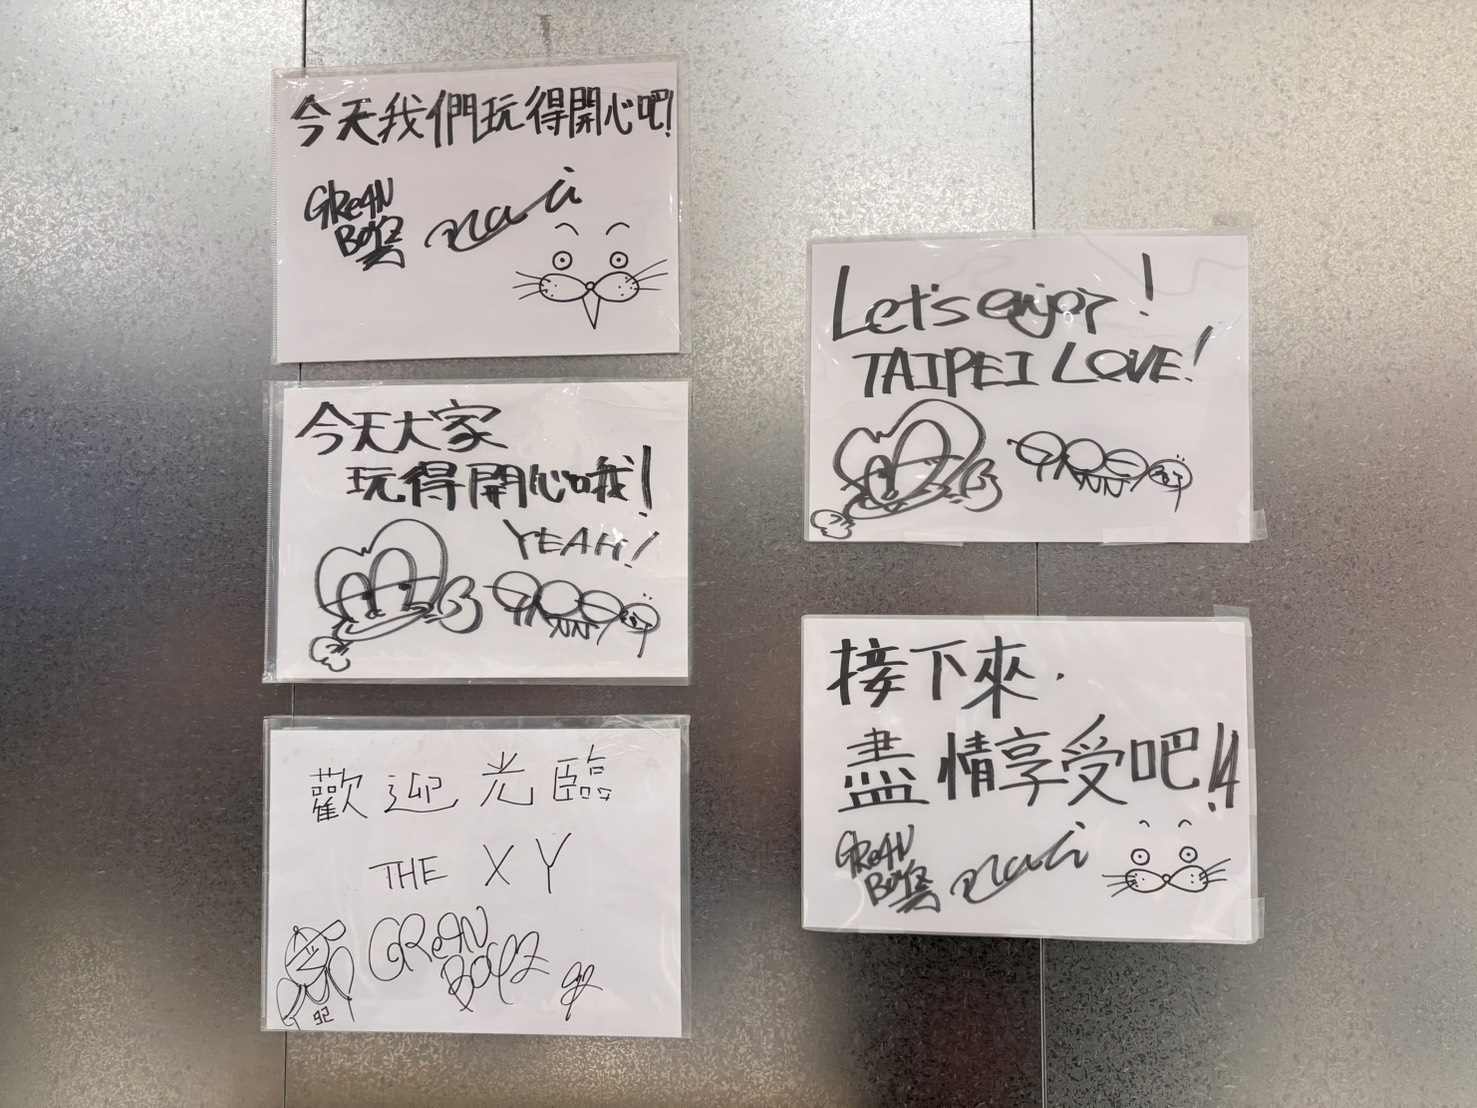 今天我們玩得開心吧!
GReeN
BoYZ
navi
今天大家
玩得開心哦!
YEAH!
歡迎光臨
THE XY
GReeN
BOYZ
92
92
Let's enjoy!
TAIPEI LOVE!
接下來.
盡情享受吧!!
GReeN
BoYZ
navi